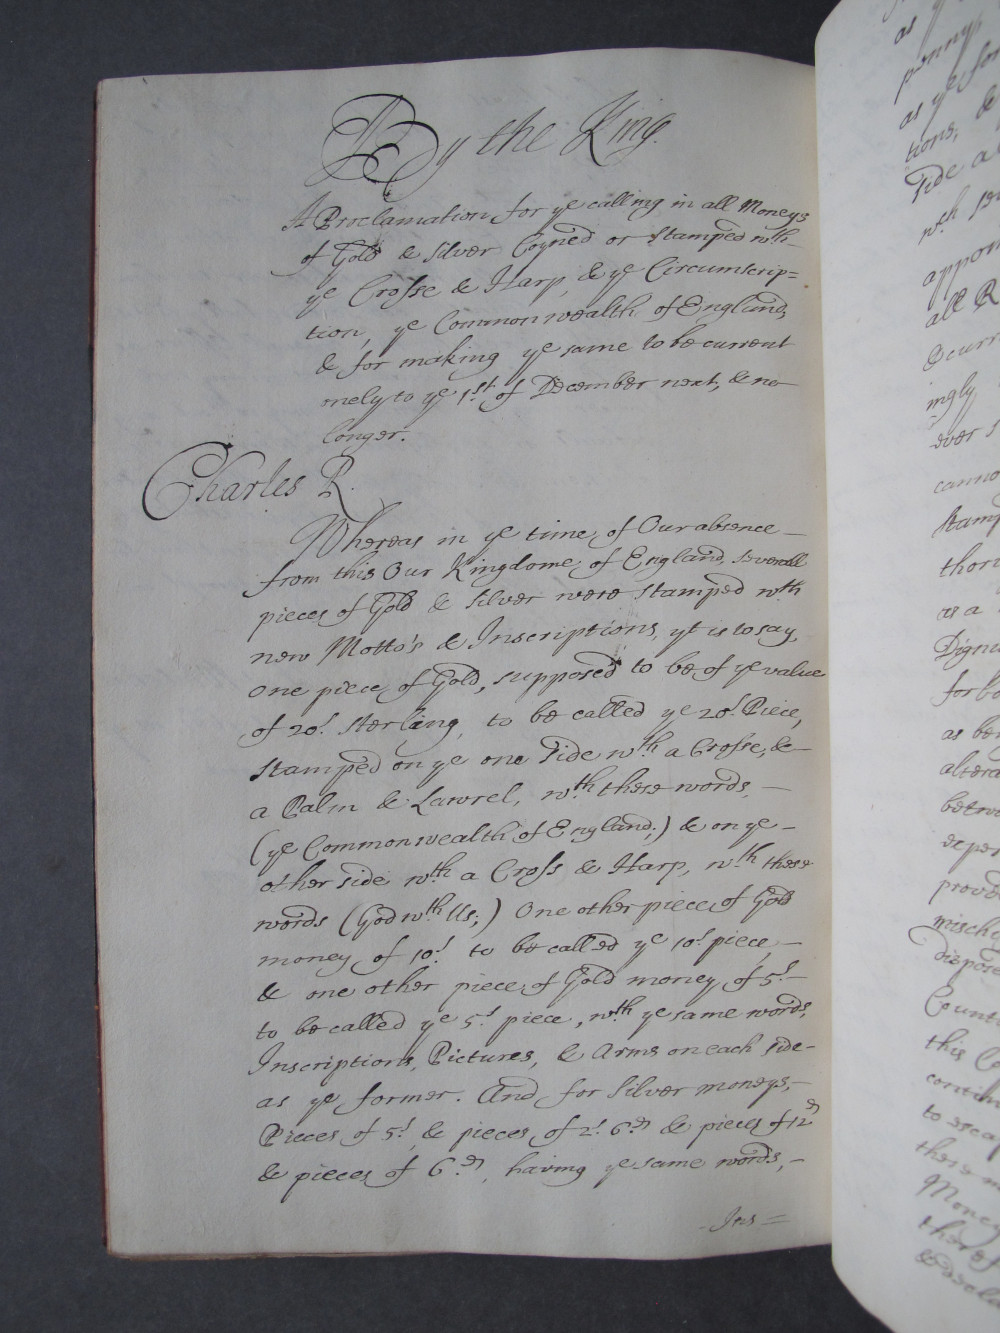 By the King.
A Proclamation for ye calling in all Moneys
of Gold & Silver Coyned or Stamped wth
ye Crosse & Harp, & ye Circumscrip=
tion, ye Commonwealth of England,
& for making ye same to be current
onely to ye 1st of December next, & no
longer.
Charles R.
Whereas in ye time of Our absence
from this Our Kingdome of England, severall
pieces of Gold & Silver were Stamped wth
new Motto's & Inscriptions, yt is to say,
One piece of Gold, supposed to be of ye value
of 20s. sterling, to be called ye 20s. Piece,
stamped on ye one Side wth a Crosse, &
a Palm & Lawrel, wth these words,
(ye Commonwealth of England;) & on ye
other side wth a Cross & Harp, wth these
words (God wth Us;) One other piece of Gold
money of 10s. to be called ye 10s. piece,
& one other piece of Gold money of 5s.
to be called ye 5s. piece, wth ye same words,
Inscriptions, Pictures, & Arms on each side
as ye former. And for Silver moneys,
Pieces of 5s. & pieces of 2s. 6d & pieces of 12d
& pieces of 6d, having ye same words,
Ins=
as
penny,
as ye for
tions, &
Side a
wth
appor
all R
Occurr
ingly
ever s
canno
Stamp
thori
as a
Dignit
forb
as be
altera
betw
exper
prove
mischi
dispose
Count
this C
contin
to escap
there m
Money
there